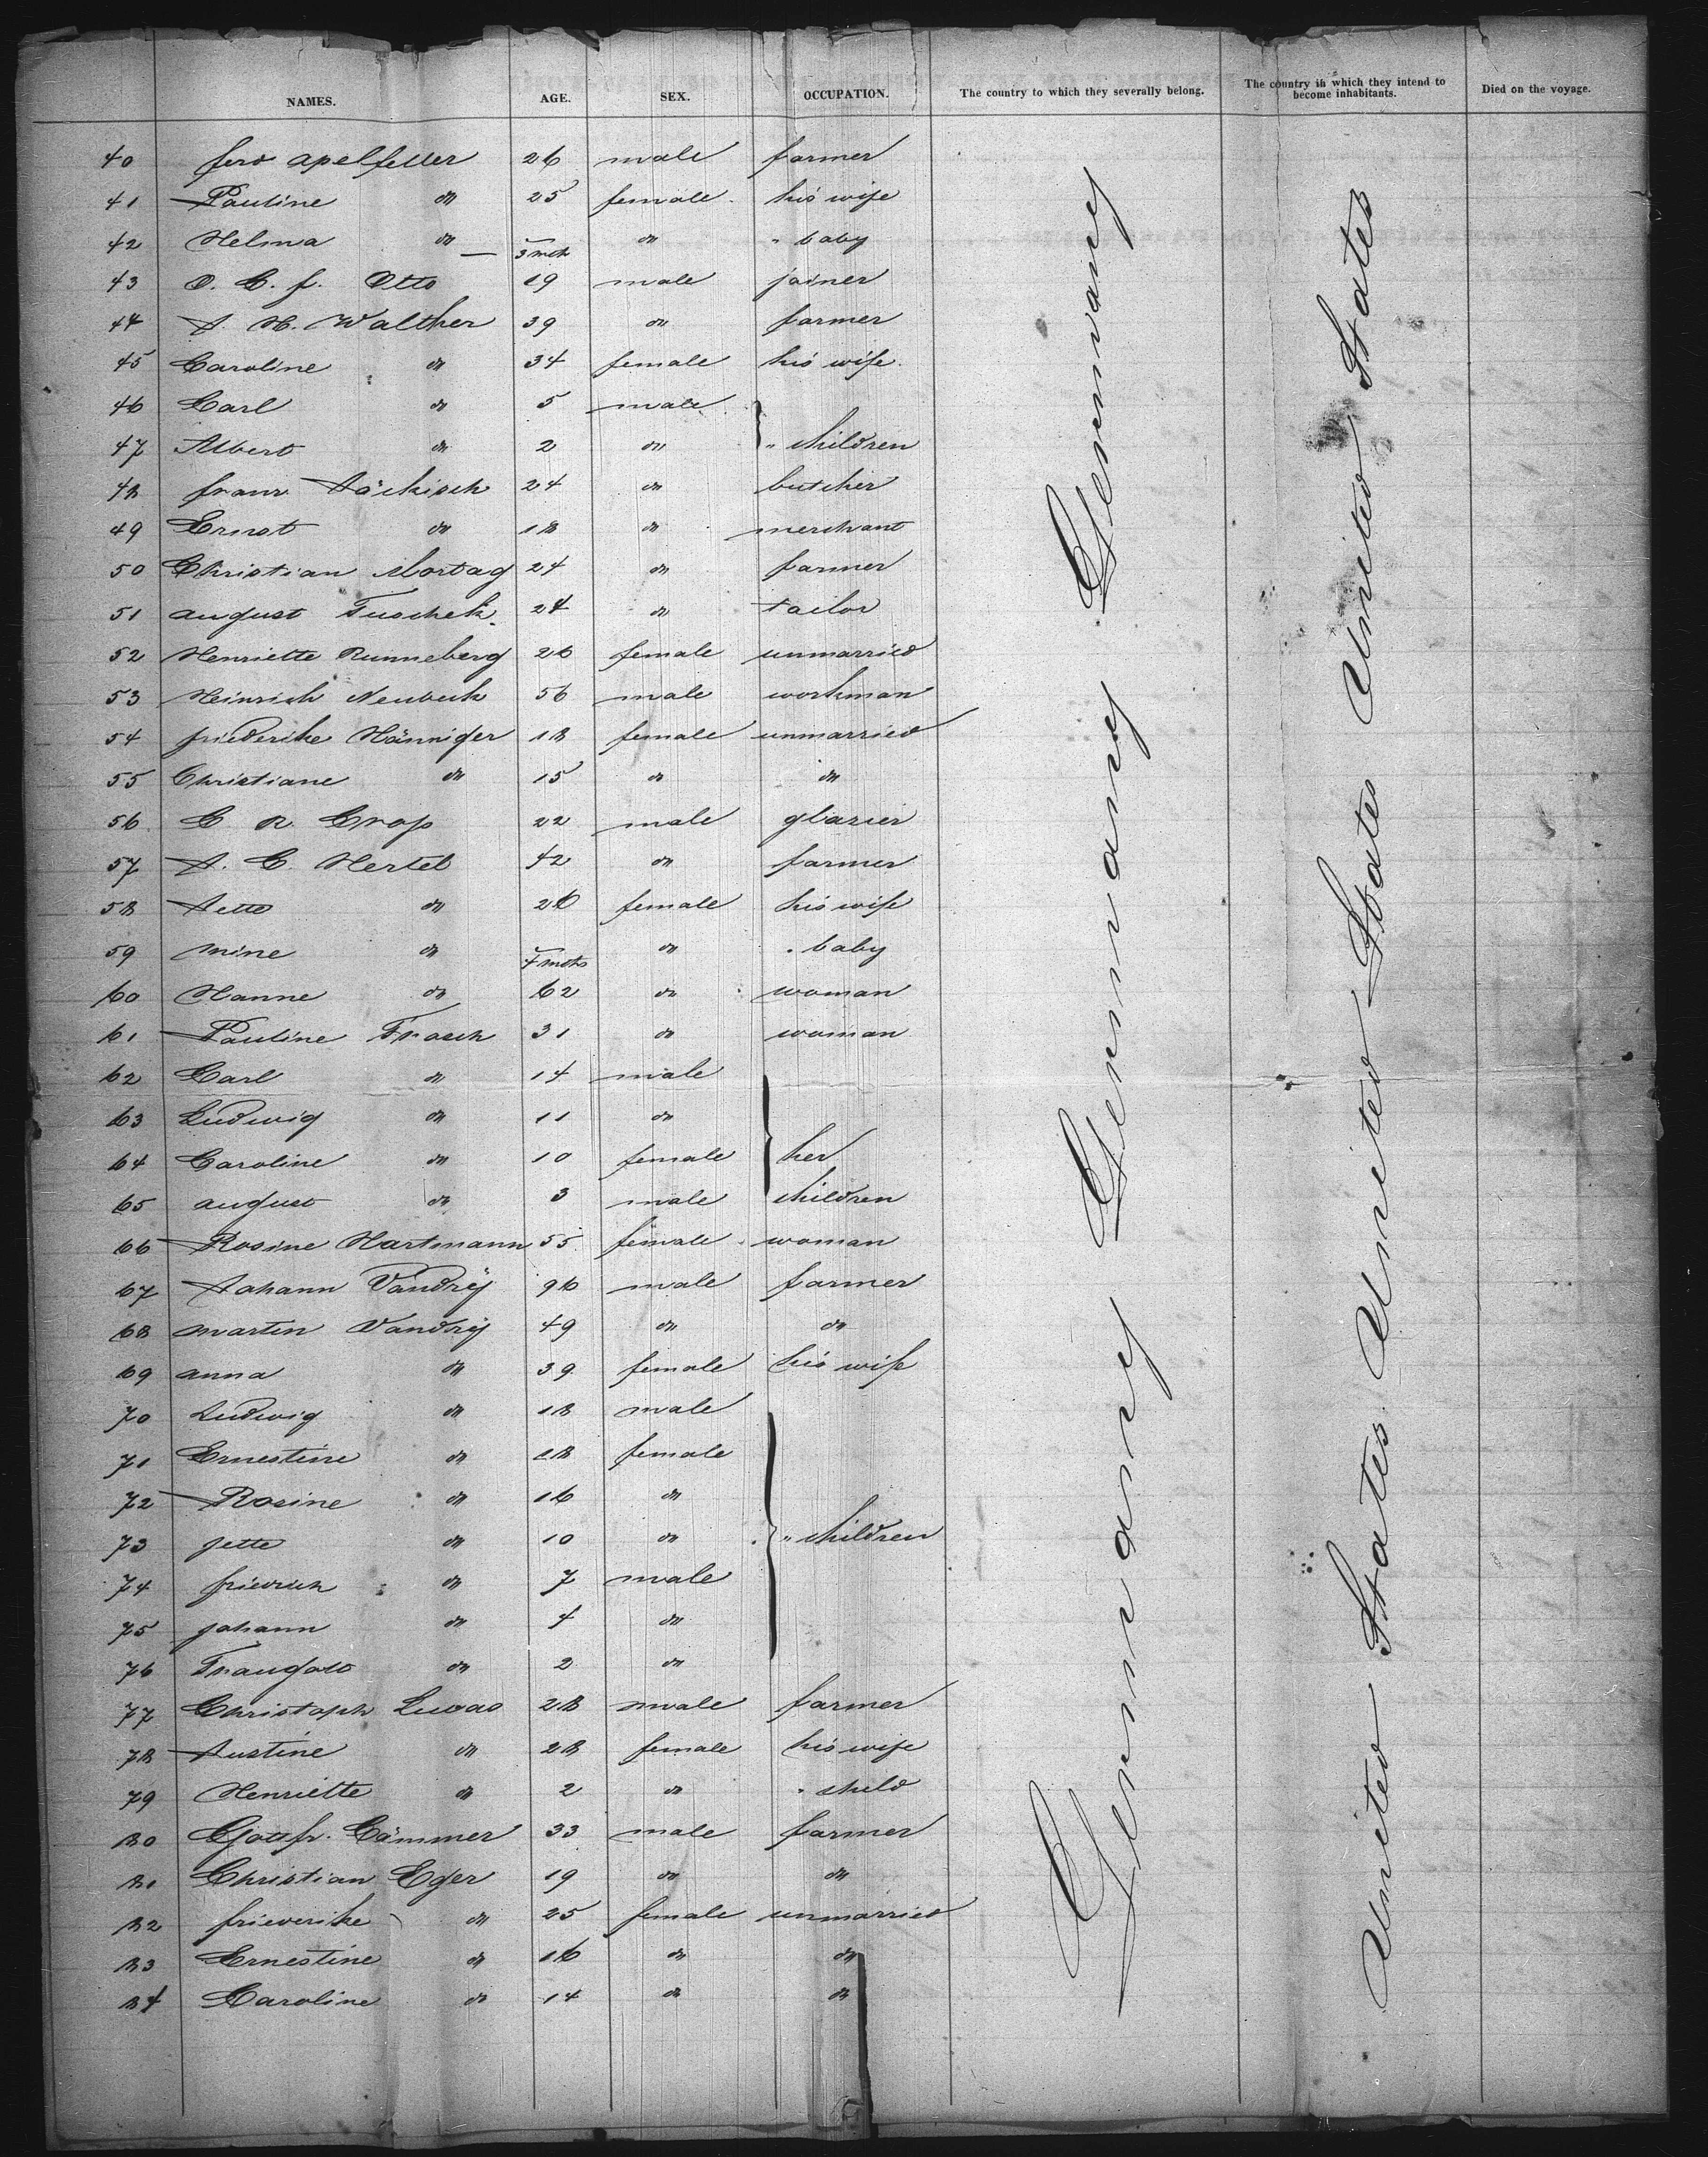 NAMES. AGE. SEX. OCCUPATION. The country to which they severally belong. The country in which they intend to become inhabitants. Died on the voyage.
40 ferd apelfeller 26 male farmer
41 Pauline do 25 female his wife
42 Helma do 3 mth do " baby
43 O. C. f. Otto 19 male joiner
44 A. H. Walther 39 do farmer
45 Caroline do 34 female his wife.
46 Carl do 5 male
47 Albert do 2 do " children
48 franz Jäckisch 24 do butcher
49 Ernst do 18 do merchant
50 Christian Mortag 24 do farmer
51 august Tuschek. 24 do tailor
52 Henriette Runneberg 26 female unmarried
53 Heinrich Neubeck 56 male workman
54 friederike Hänniger 18 female unmarried
55 Christiane do 15 do do
56 C. R. Crops 22 male glazier
57 A. C. Hertel 42 do farmer
58 Jette do 26 female his wife
59 mine do 4 mths do " baby
60 Hanne do 62 do woman
61 Pauline Frasch 31 do woman
62 Carl do 14 male
63 Ludwig do 11 do
64 Caroline do 10 female her
65 august do 3 male children
66 Rosine Hartmann 55 female woman
67 Johann Vandrëy 96 male farmer
68 martin Vandrëy 49 do do
69 anna do 39 female his wife
70 Ludwig do 18 male
71 Ernestine do 18 female
72 Rosine do 16 do
73 jette do 10 do " children
74 friedrich do 7 male
75 johann do 4 do
76 Traugott do 2 do
77 Christoph Lucas 28 male farmer
78 Justine do 28 female his wife
79 Henriette do 2 do " child
80 Gottfr. Cämmer 33 male farmer
81 Christian Eger 19 do do
82 friederike do 25 female unmarried
83 Ernestine do 16 do do
84 Caroline do 14 do do
Germany Germany Germany
United States United States United States